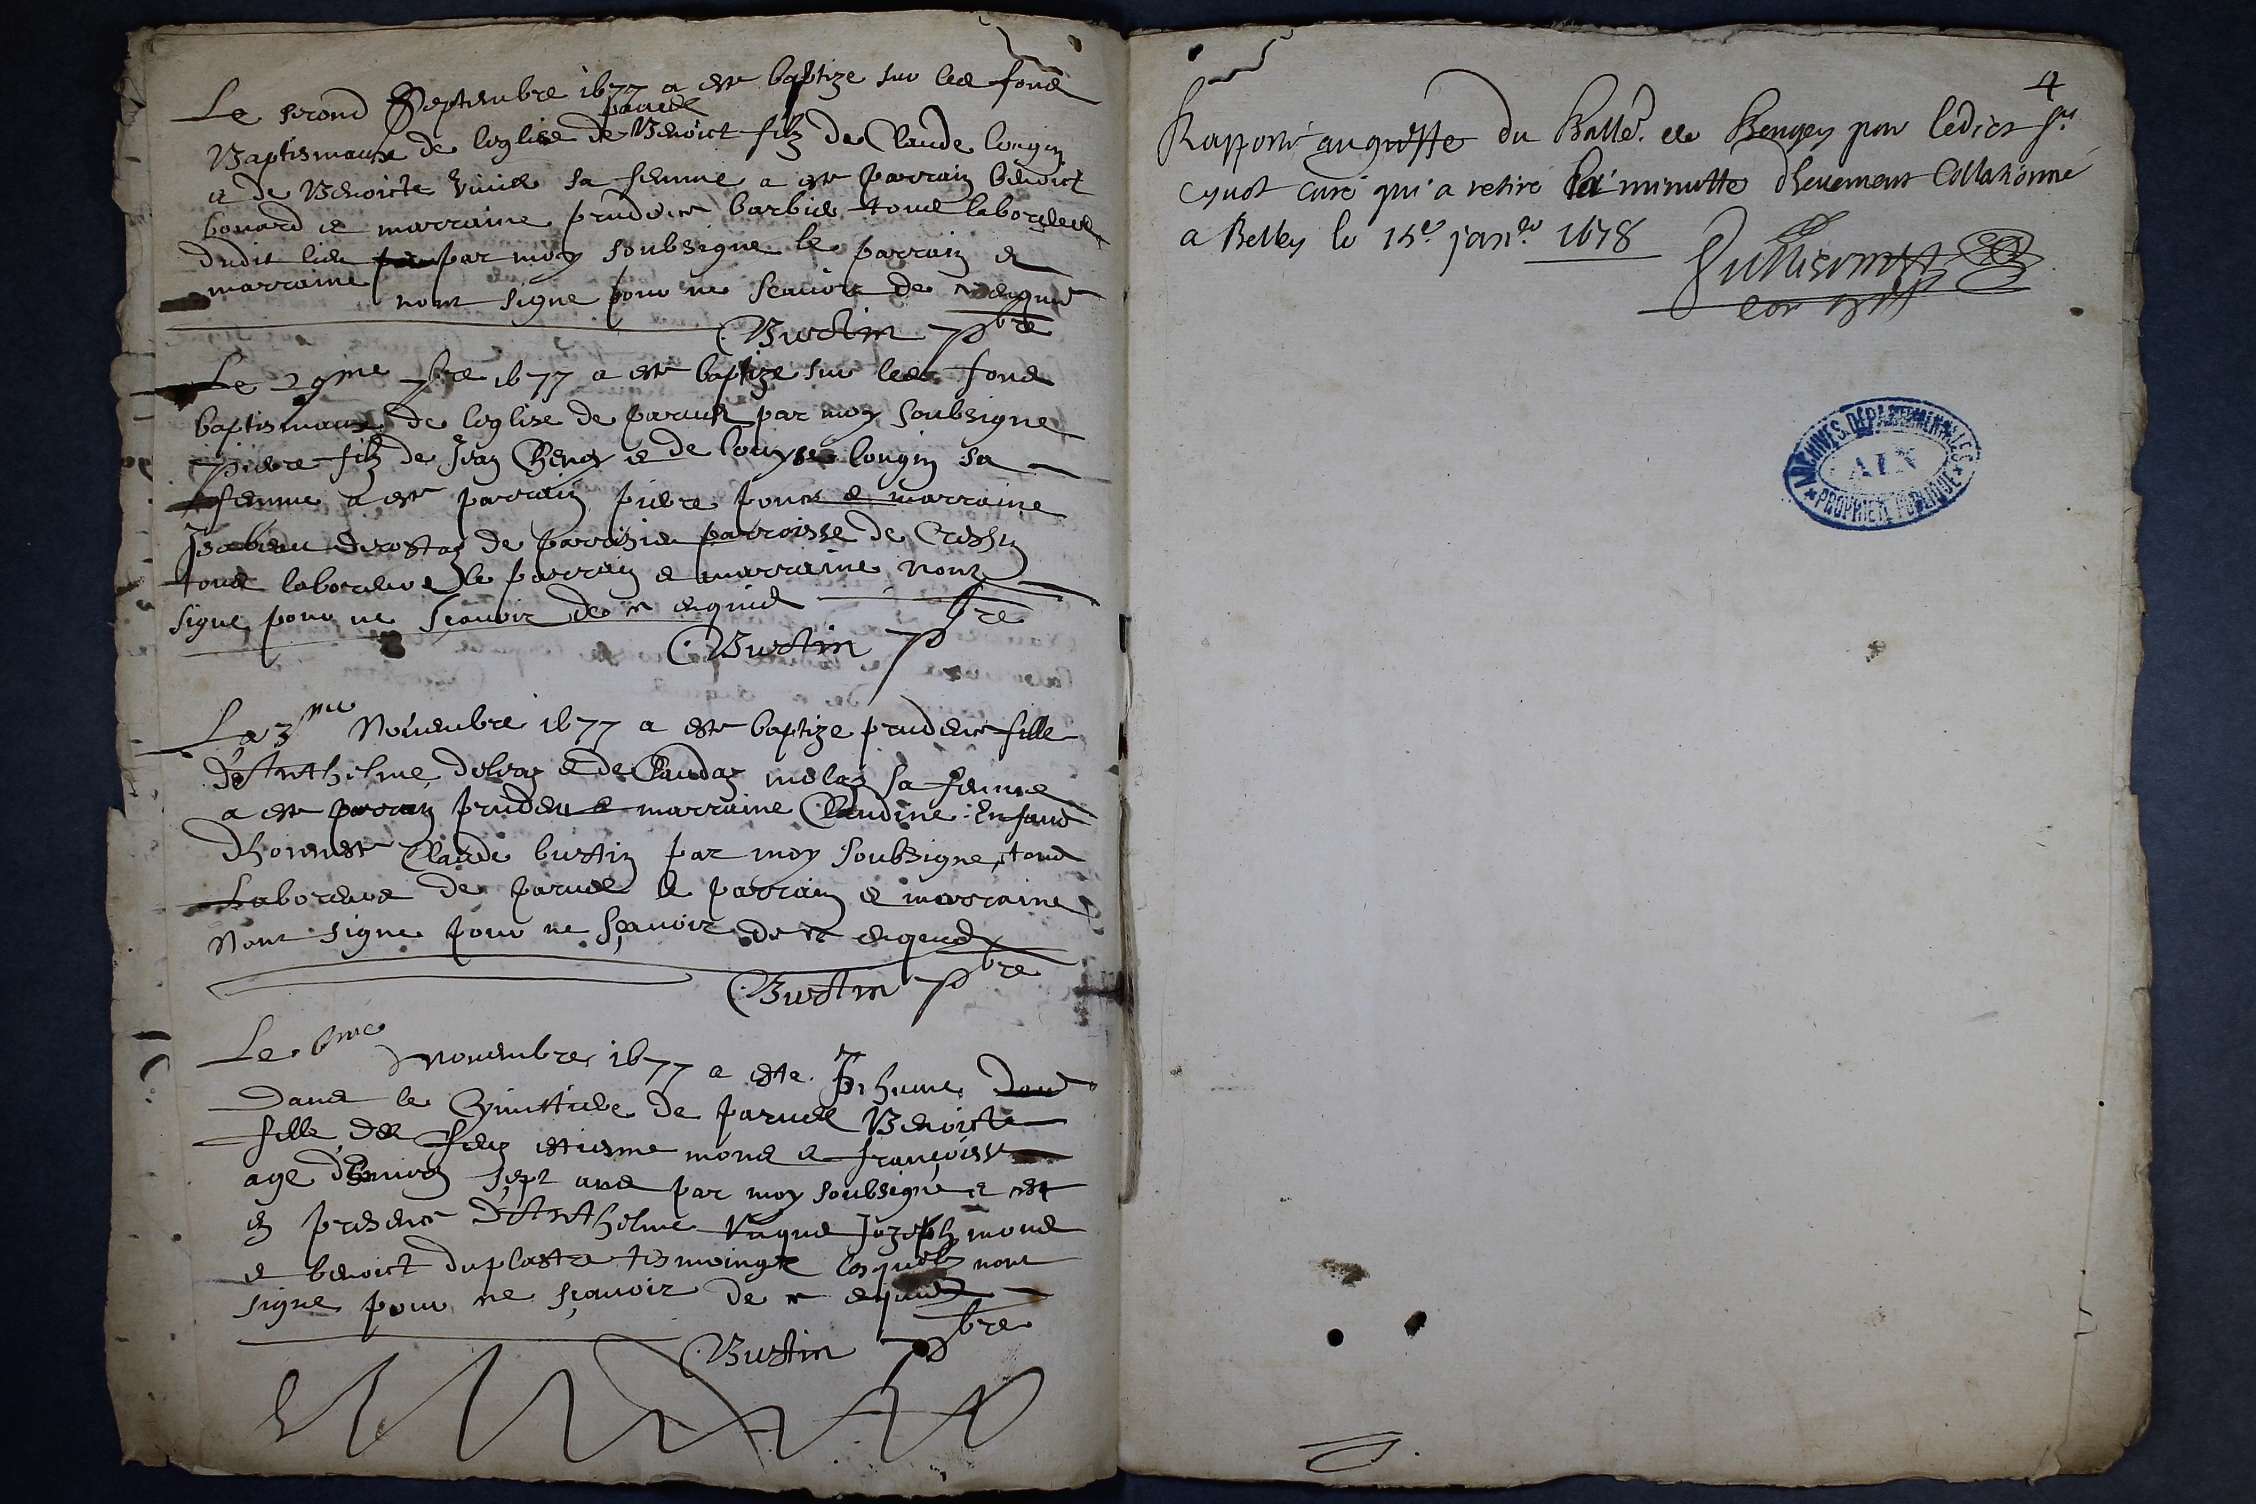 Le second Septembre 1677 a este baptize sur les fons
parves
Baptismaux de leglise de Benoict filz de Claude longin
e de Benoicte sa femme a este parrain benoict
bonard e marraine prudence barbie tous laboreurs
dudit lieu par moy soubsigne le parrain e
marraine
nont signe pour ne scavoir de ce enquis
Bustin pbre
Le 29me 7bre 1677 a este baptize sur les fons
baptismaux de leglise de parves par moy soubsigne
pierre filz de Jean e de louyse longin sa
femme a este parrain pierre pons e marraine
Isabeau de parrisieu parroisse de Cressin
tous laboreurs le parrain e marraine nont
signe pour ne scavoir de ce enquis
Bustin pbre
Le 3me Novembre 1677 a este baptize prudence fille
d'Anthelme e de Claudaz sa femme
a este parrain prudent e marraine Claudine Enfans
dhonneste Claude bustin par moy soubsigne tous
Laboreurs de parves le parrain e marraine
Nont signe pour ne sçavoir de ce enquis
Bustin pbre
Le 6me Novembre 1677 a este Inhume
dans le Cymittiere de parves Benoicte
fille de feu estienne mons e françoise
age denviron sept ans par moy soubsigne e cest
en presence d'Anthelme Jozeph mons
e benoict duplastre tesmoings lesquels nont
signe pour ne sçavoir de ce enquis
Bustin pbre
4
Rapporté au greffe du Balle. de Beugey par ledict sr
cynot curé qui a retiré la minutte dheuement Collationné
a Belley le 15e janr. 1678
ARCHIVES DEPARTEMENTALES
AIN
PROPRIETE PUBLIQUE